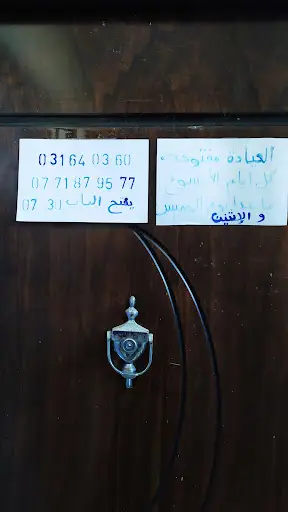 031 64 03 60
07 71 87 95 77
07 31 يفتح الباب
العيادة مفتوحة
كل أيام الأسبوع
ما عدا يوم الخميس
و الإثنين